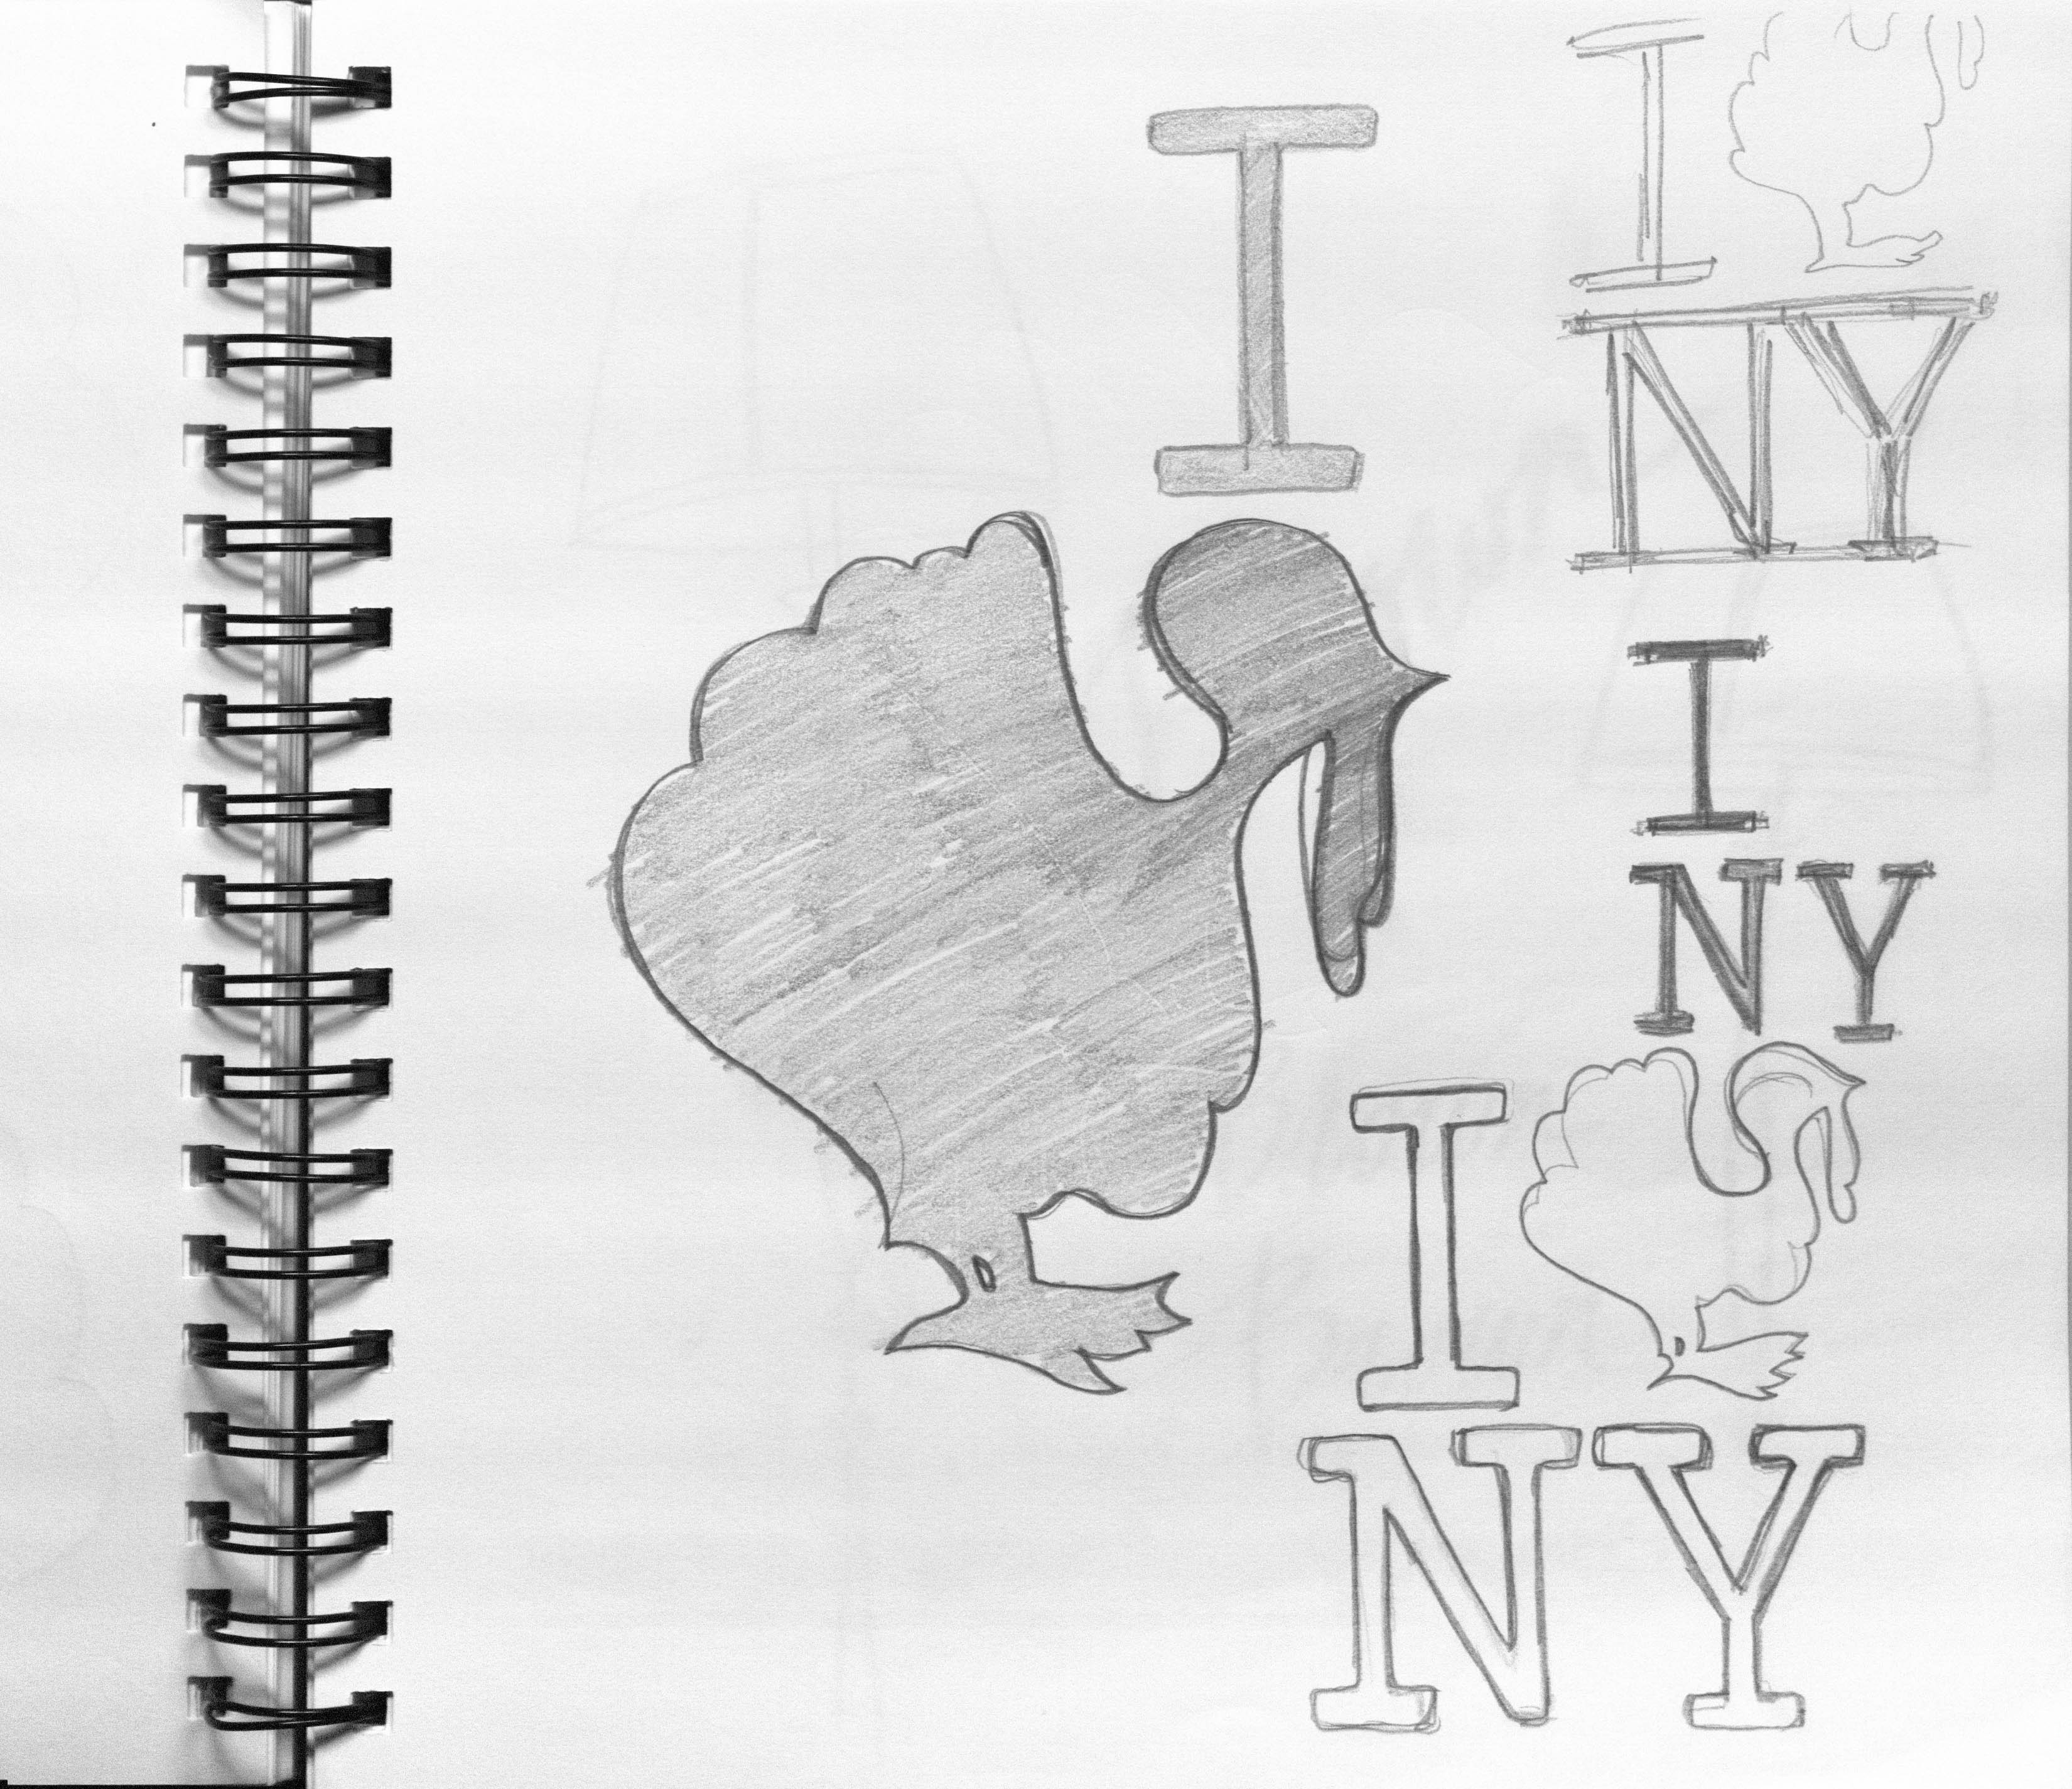 I
I
NY
I
NY
I
NY